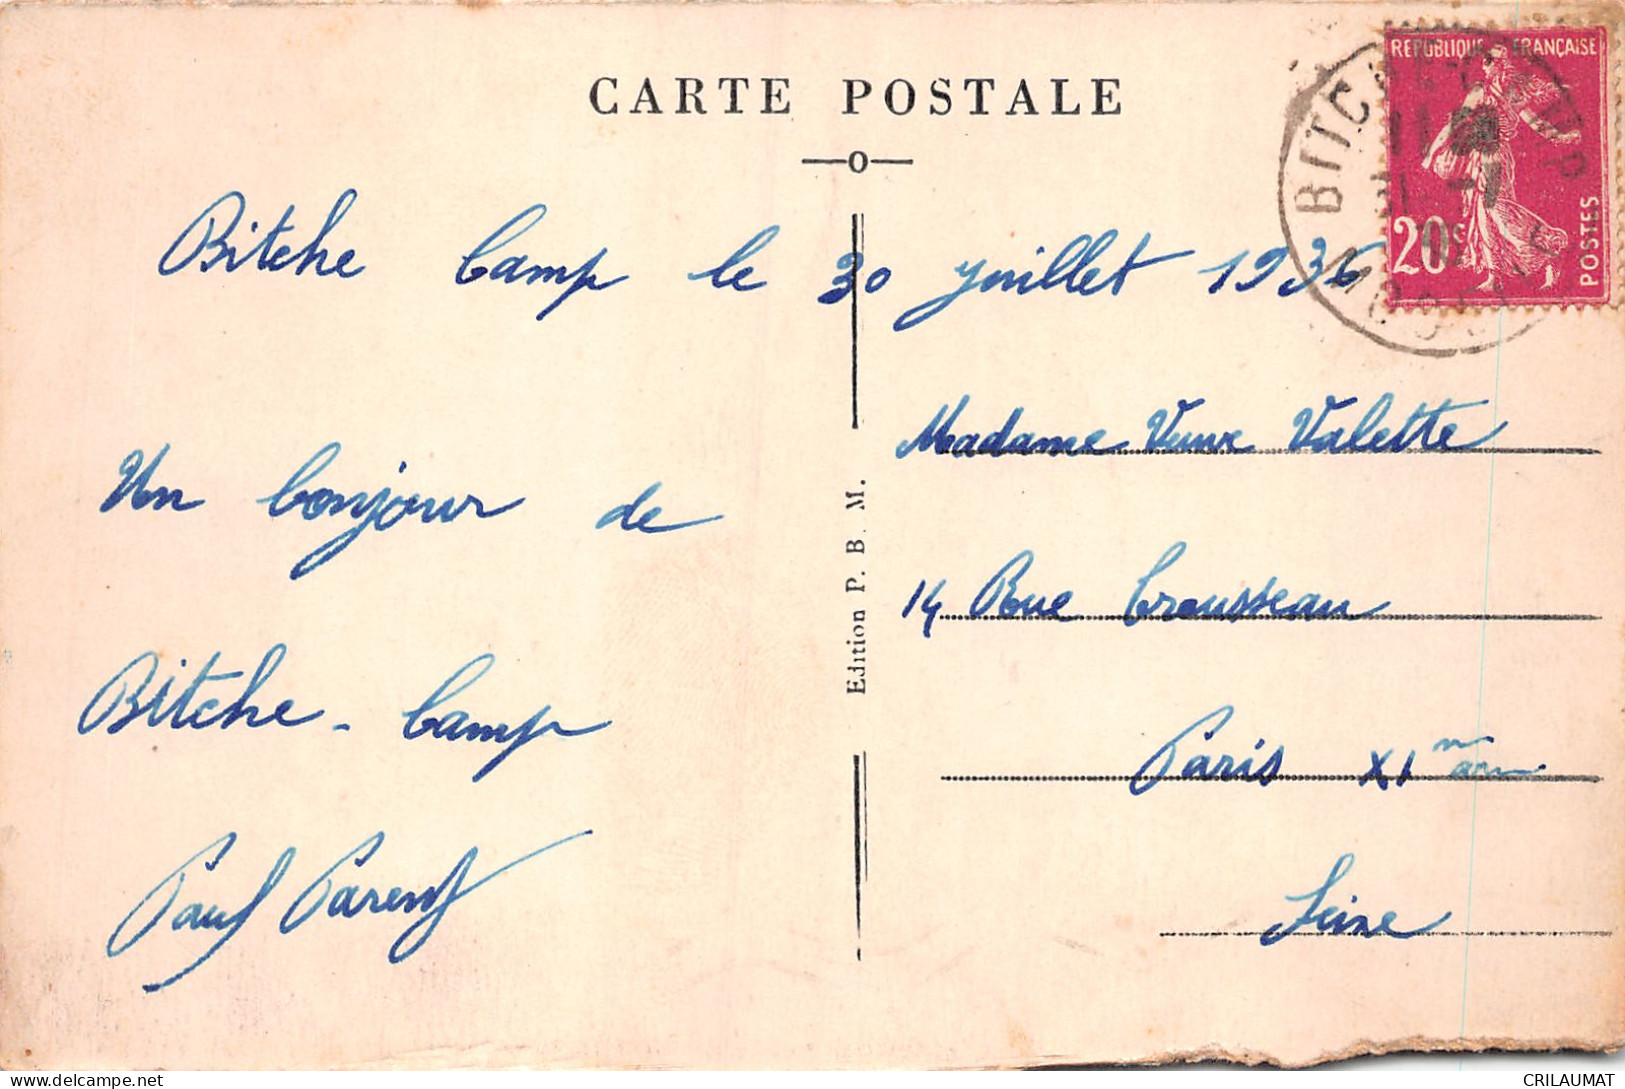 CARTE POSTALE
Bitche Camp le 30 juillet 1936
Un bonjour de
Bitche - Camp
Paul Parent
Edition P. B. M.
REPUBLIQUE FRANÇAISE
20c
POSTES
BITCHE-CAMP
31 -7
MOSELLE
Madame Veuve Valette
14 Rue Crousseau
Paris XI me arr
Seine
CRILAUMAT